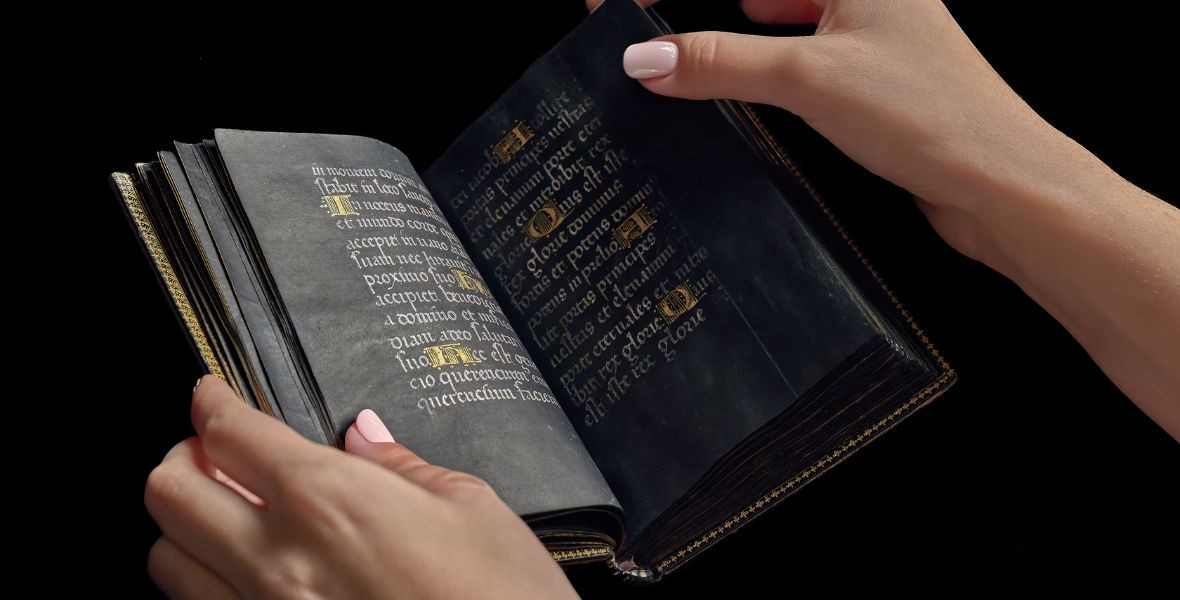 in montem domini
stabit in loco sanct
Innocens manib
et mundo corde qu
accepit in uano a
suam nec iurauit
proximo suo. Hi
accipiet benedict
a domino et mise
diam a deo saluta
suo. Hec est gen
cio querencium e
querencium facie
iacob Attollite
portas principes uestras
et eleuamini porte eter
nales et introibit rex
glorie Quis est iste
rex glorie dominus
fortis et potens domin
potens in prelio Atto
lite portas principes
uestras et eleuamini
porte eternales et intro
ibit rex glorie Quis
est iste rex glorie